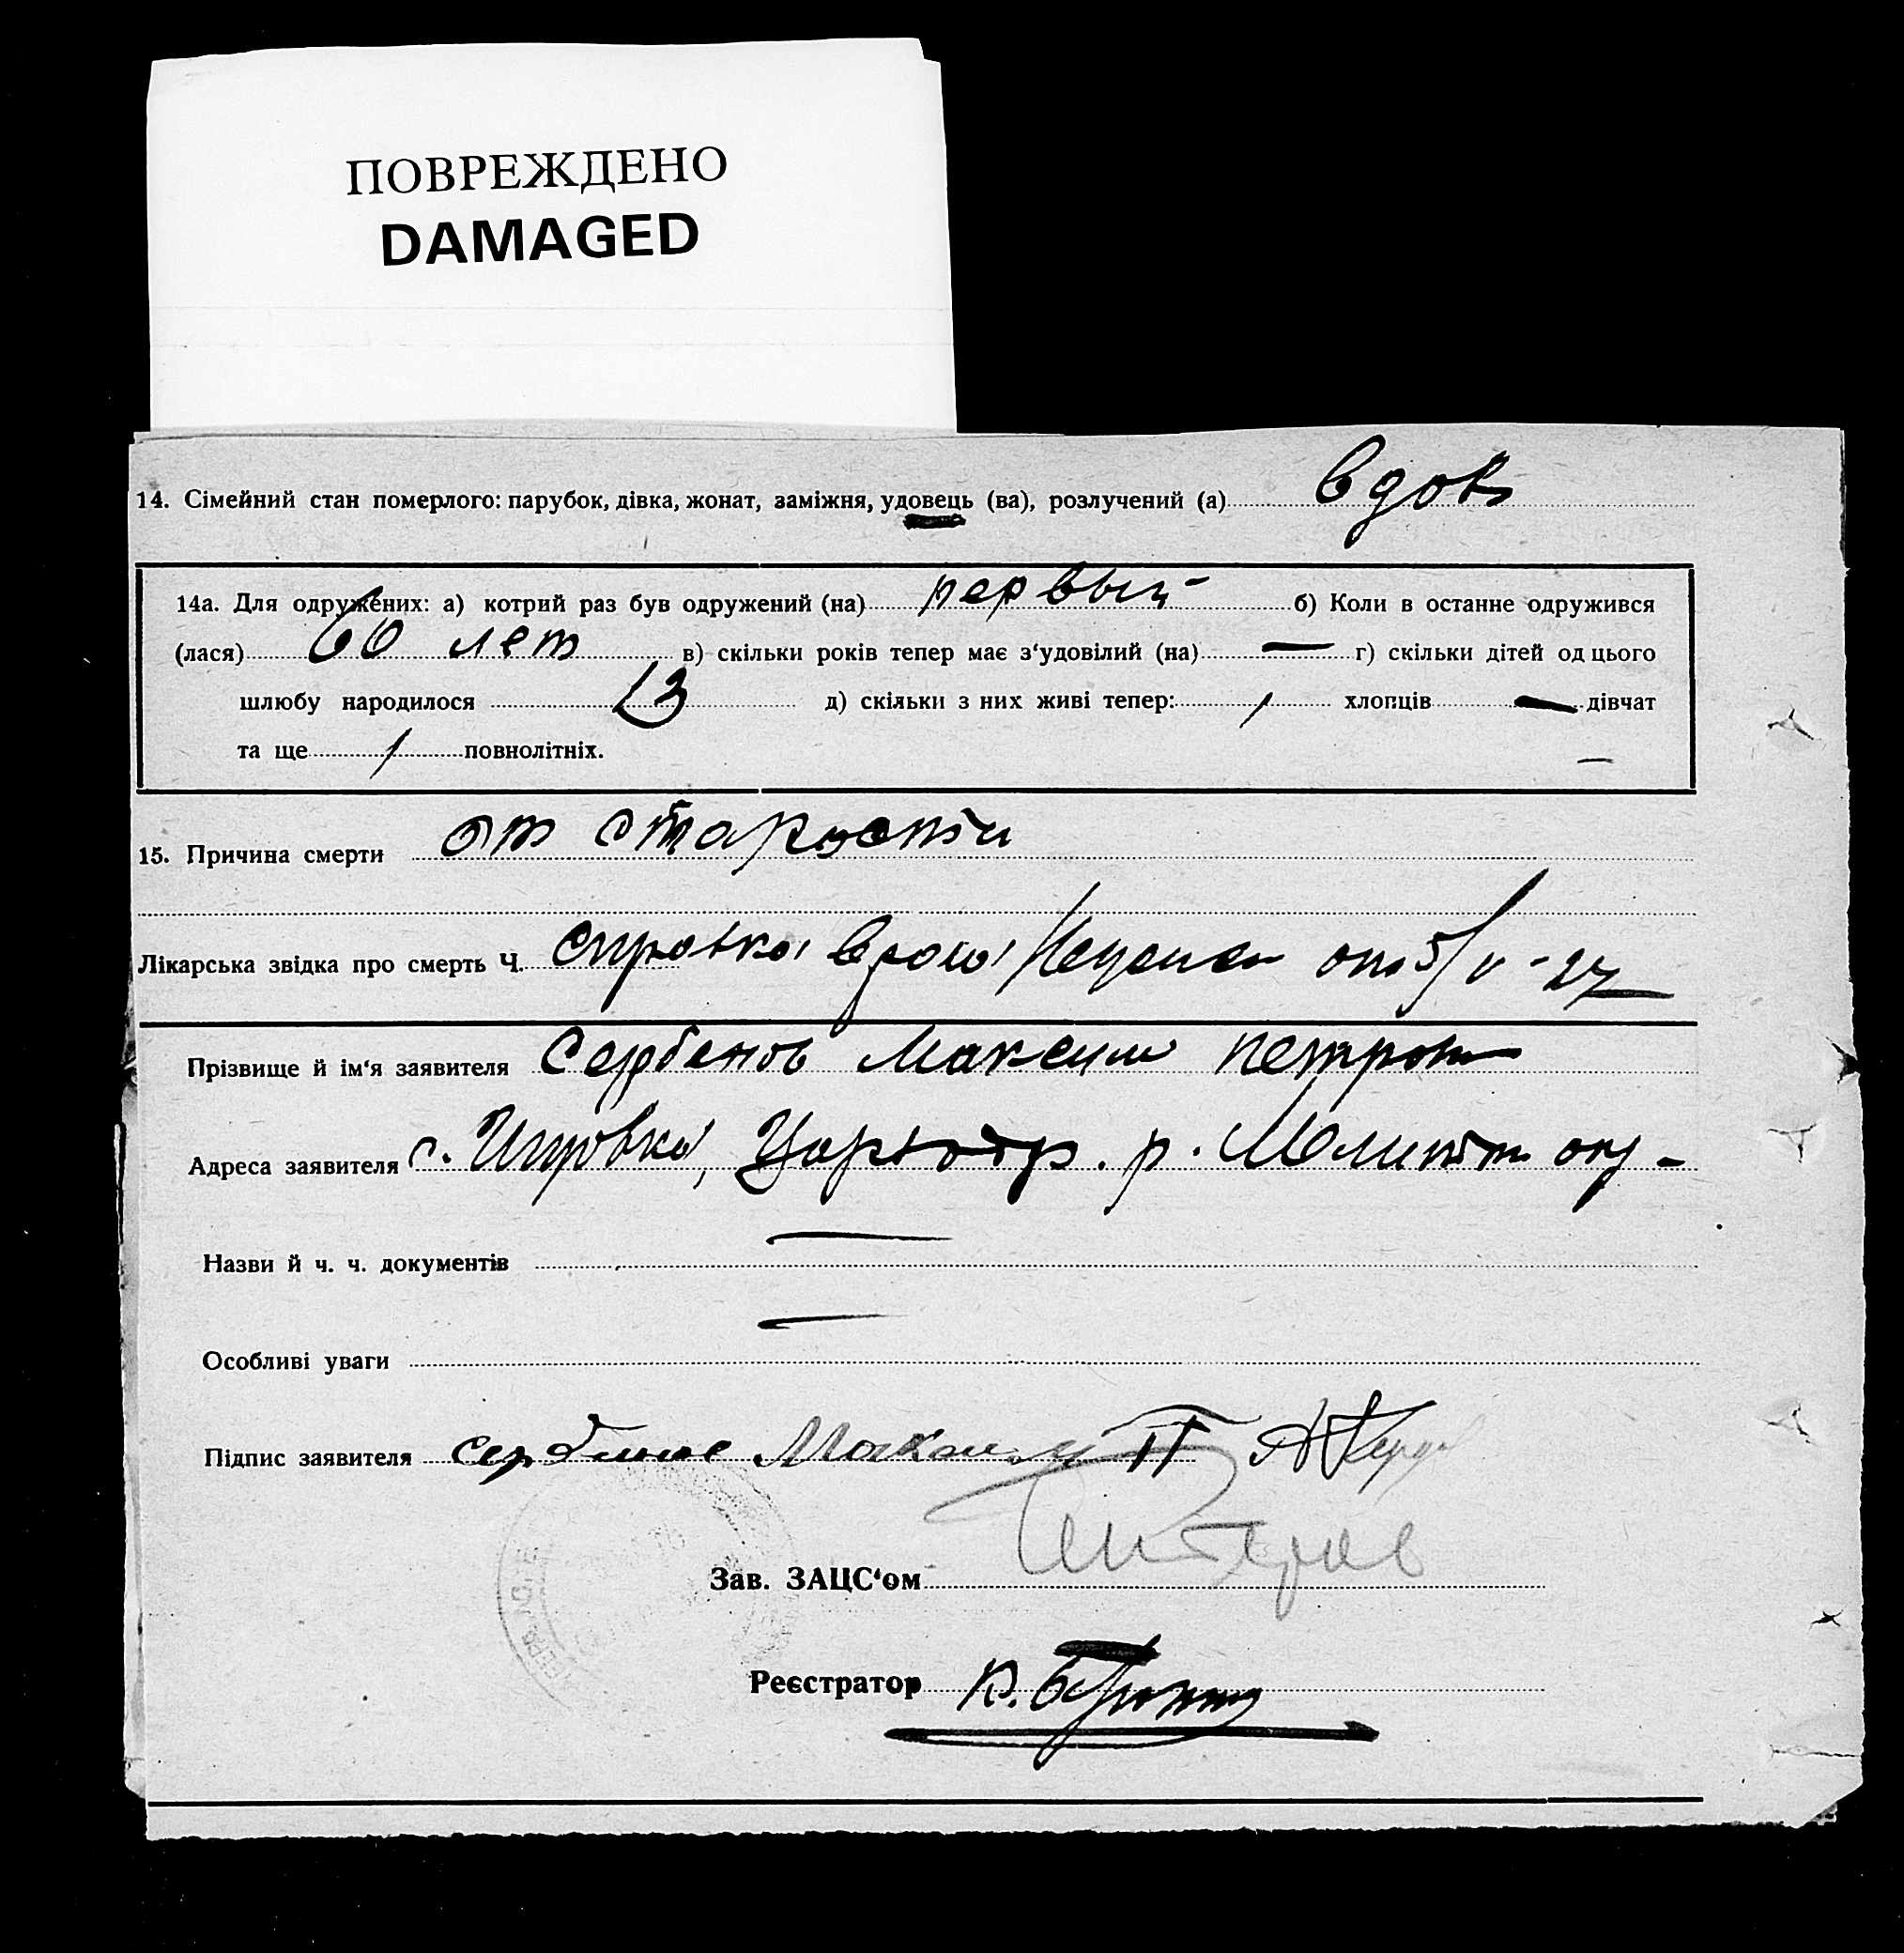 ПОВРЕЖДЕНО
DAMAGED
14. Сімейний стан померлого: парубок, дівка, жонат, заміжня, удовець (ва), розлучений (а) вдов
14а. Для одружених: а) котрий раз був одружений (на) первый б) Коли в останне одружився
(лася) 60 лет в) скільки років тепер має з‘удовілий (на) — г) скільки дітей од цього
шлюбу народилося 13 д) скільки з них живі тепер: 1 хлопців — дівчат
та ще 1 повнолітніх. —
15. Причина смерти от старости
Лікарська звідка про смерть Ч. справка врача от 5/V-27
Прізвище й ім‘я заявителя Максим Петров
Адреса заявителя с. р. Мелитоп окр -
Назви й ч. ч. документів —
Особливі уваги —
Підпис заявителя Максим П
Зав. ЗАЦС‘ом
Реєстратор К.